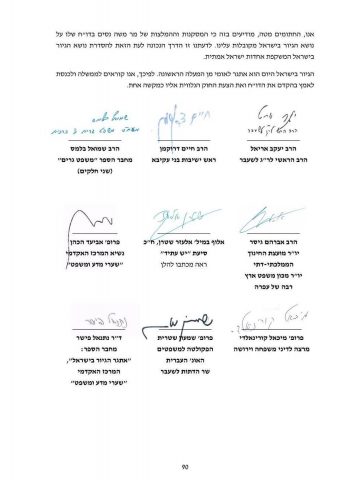 אנו, החתומים מטה, מודיעים בזה כי המסקנות וההמלצות של מר משה נסים בדו״ח שלו על
נושא הגיור בישראל מקובלות עלינו. לדעתנו זו הדרך הנכונה לעת הזאת להסדרת נושא הגיור
בישראל המשקפת אחדות ישראל אמתית.
הגיור בישראל היום הוא אתגר לאומי מן המעלה הראשונה. לפיכך, אנו קוראים לממשלה ולכנסת
לאמץ בהקדם את הדו״ח ואת הצעת החוק הנלווית אליו כמקשה אחת.
הרב יעקב אריאל
הרב הראשי לר״ג לשעבר
הרב חיים דרוקמן
ראש ישיבות בני עקיבא
הרב שמואל בלמס
מחבר הספר ״משפט גרים״
(שני חלקים)
הרב אברהם גיסר
יו״ר מועצת החינוך
הממלכתי-דתי
יו״ר מכון משפט ארץ
רבה של עפרה
אלוף במיל׳ אלעזר שטרן, ח״כ
סיעת ״יש עתיד״
ראה מכתבו להלן
פרופ׳ אביעד הכהן
נשיא המרכז האקדמי
״שערי מדע ומשפט״
פרופ׳ מיכאל קורינאלדי
מרצה לדיני משפחה וירושה
פרופ׳ שמעון שטרית
הפקולטה למשפטים
האונ׳ העברית
שר הדתות לשעבר
ד״ר נתנאל פישר
מחבר הספר:
״אתגר הגיור בישראל״,
המרכז האקדמי
״שערי מדע ומשפט״
90